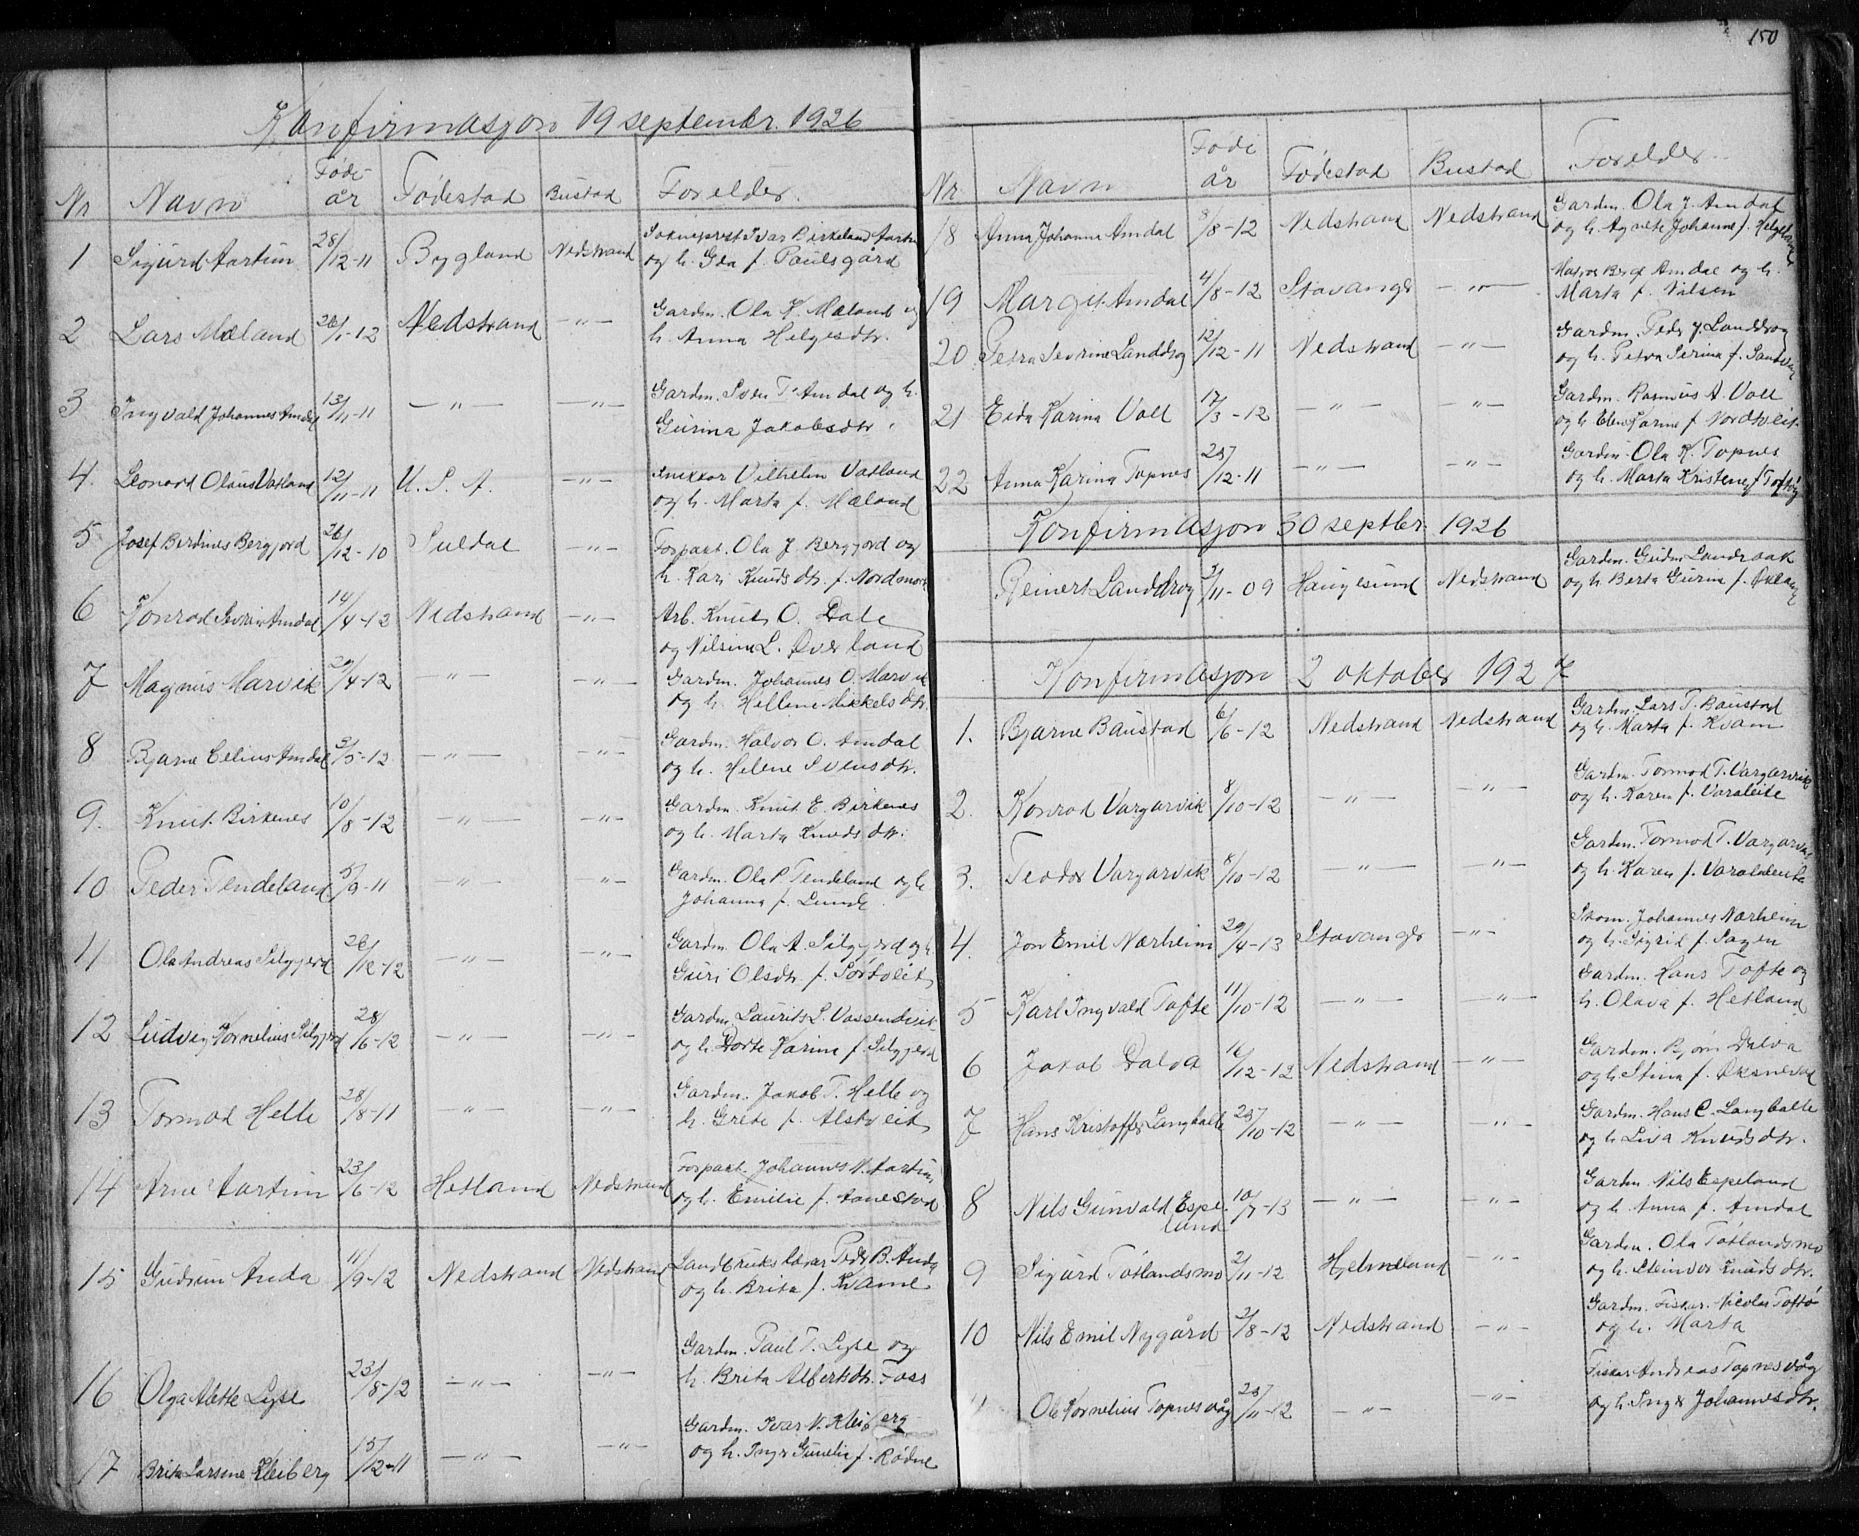 Konfirmasjon 19 septembr. 1926
Nr Navn Føde-år Fødestad Bustad Forelder.
1 Sigurd Aartun 28/12-11 Bygland Nedstrand Sokneprest Ivar Birkeland Aartun
og h. Gda f. Paulsgård
2 Lars Mæland 26/1-12 Nedstrand —"— Gardm. Ola K. Mæland og
h. Anna Helgesdtr.
3 Ingvald Johannes Amdal 13/11-11 —"— —"— Gardm. Sven T. Amdal og h.
Gurina Jakobsdtr.
4. Leonard Olaus Vatland 12/11-11 U. S. A. —"— Snikkar Vilhelm Vatland
og h. Marta f. Mæland
5 Josef Berdines Bergjord 26/12-10 Suldal —"— Forpakt. Ola J. Bergjord og
h. Kari Knudsdtr. f. Nordmork
6 Konrad Severin Amdal 14/4-12 Nedstrand —"— Arb. Knut O. Dale
og Nilsine L. Øverland
7 Magnus Marvik 20/4-12 —"— —"— Gardm. Johannes O. Marvik
og h. Helline Mikkelsdtr.
8 Bjarne Celius Amdal 3/5-12 —"— —"— Gardm. Halvor O. Amdal
og h. Helene Svensdtr.
9. Knut Birkenes 10/8-12 —"— —"— Gardm. Knut E. Birkenes
og h. Marta Knudsdtr.
10 Peder Tendeland 5/9-11 —"— —"— Gardm. Ola P. Tendeland og h
Johanna f. Lunde
11 Ola Andreas Silgjerd 26/12-12 —"— —"— Gardm. Ola A. Silgjerd og h
Guri Olsdtr. f. Sørtveit
12 Ludvig Kornelius Silgjerd 28/6-12 —"— —"— Gardm. Laurits L. Vassendvik
og h. Dorte Karine f. Silgjerd
13 Tormod Helle 28/8-11 —"— —"— Gardm. Jakob T. Helle og
h. Grete f. Alstveit
14 Arne Aartun 23/6-12 Hetland Nedstrand Forpakt. Johannes N. Aartun
og h. Emilie f. Aanestad
15 Gudrun Anda 11/9-12 Nedstrand Nedstrand Landbrukslærar Peder B. Anda
og h. Brita f. Kvame
16 Olga Alette Lyse 23/8-12 —"— —"— Gardm. Paul T. Lyse og
h. Brita Albertsdtr. Foss
17 Brita Larsine Kleiberg 15/12-11 —"— —"— Gardm. Ivar N. Kleiberg
og h. Inger Gunelie f. Rødne
150
Nr. Navn Føde år Fødestad Bustad Forelder
18 Anna Johanna Amdal 8/8-12 Nedstrand Nedstrand Gardm. Ola J. Amdal
og h. Agnete Johanne f. Helgeland
19 Margit Amdal 4/8-12 Stavanger —"— Amdal og h.
Marta f. Nilsen
20 Petra Severine Landdrog 12/12-11 Nedstrand —"— Gardm. Peder J. Landdrog
og h. Petra Serina f. Sandvik
21 Eida Karina Voll 17/3-12 —"— —"— Gardm. Rasmus A. Voll
og h Elen Karine f Nordtveit
22 Anna Karina Topnes 27/12-11 —"— —"— Gardm. Ola K. Topnes
og h. Marta Kristene f Toftøy
Konfirmasjon 30 septbr. 1926
Reinert Landdrog 3/11-09 Haugesund Nedstrand Gardm. Landraak
og h Berta Gurina f.
Konfirmasjon 2 oktober 1927
1. Bjarne Baustad 6/6-12 Nedstrand Nedstrand Gardm. Lars T. Baustad
og h. Marta f. Kvam
2. Konrad Vargarvik 8/10-12 —"— —"— Gardm. Tormod T. Vargarvik
og h. Karen f. Varaleite
3. Teodor Vargarvik 8/10-12 —"— —"— Gardm. Tormod T. Vargarvik
og h. Karen f.
4. Jon Emil Nærheim 29/4-13 Stavanger —"— Skom. Johannes Nærheim
og h. Sigrid f. Sagen
5 Karl Ingvald Tofte 11/10-12 —"— —"— Gardm. Hans Tofte og
h. Olava f. Hetland
6 Jakob Dalva 16/12-12 Nedstrand —"— Gardm. Bjørn Dalva
og h Stina f. Øksnevad
7 Hans Kristoffer Langballe 27/10-12 —"— —"— Gardm. Hans C. Langballe
og h Liva Knudsdtr.
8 Nils Gunvald Espe-
lund 10/7-13 —"— —"— Gardm. Nils Espeland
og h. Anna f. Amdal
9 Sigurd Tøtlandsmo 2/11-12 Hjelmeland —"— Gardm. Ola Tøtlandsmo
og h. Steinvor Knudsdtr.
10 Nils Emil Nygård 2/8-12 Nedstrand —"— Gardm. Fisker. Nicolai Toftø
og h. Marta
11 Ole Kornelius Topnesvåg 27/11-12 —"— —"— Fisker Andreas Topnesvåg
og h. Inger Johannesdtr.